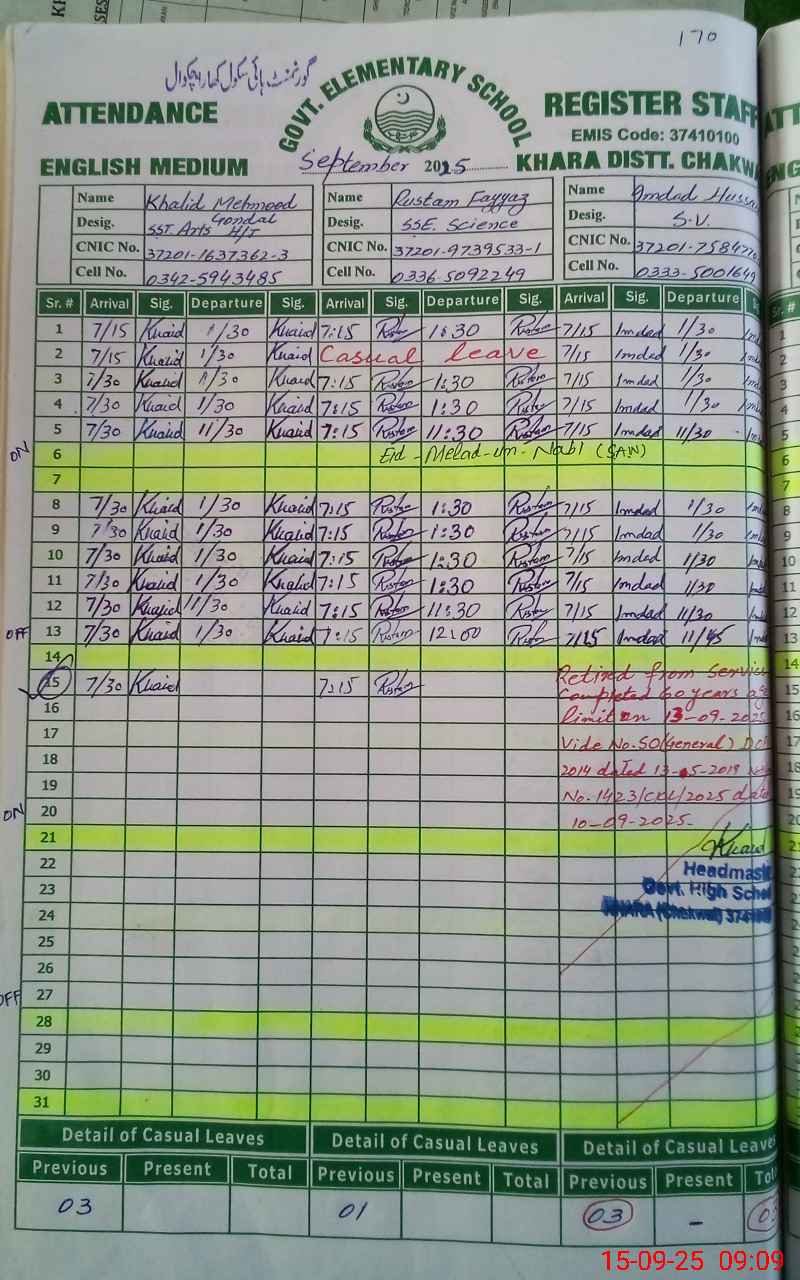 170
گورنمنٹ ہائی سکول کھارا چکوال
GOVT. ELEMENTARY SCHOOL
ATTENDANCE REGISTER STAFF
EMIS Code: 37410100
ENGLISH MEDIUM September 2025 KHARA DISTT. CHAKWA
Name Khalid Mehmood Gondal Name Rustam Fayyaz Name Imdad Hussa
Desig. SST Arts H/T Desig. SSE. Science Desig. S.V.
CNIC No. 37201-1637362-3 CNIC No. 37201-9739533-1 CNIC No. 37201-75847
Cell No. 0342-5943485 Cell No. 0336-5092249 Cell No. 0333-5001649
Sr. # Arrival Sig. Departure Sig. Arrival Sig. Departure Sig. Arrival Sig. Departure
1 7/15 Khalid 1/30 Khalid 7:15 Rustam 1:30 Rustam 7/15 Imdad 1/30
2 7/15 Khalid 1/30 Khalid Casual leave 7/15 Imdad 1/30
3 7/30 Khalid 1/30 Khalid 7:15 Rustam 1:30 Rustam 7/15 Imdad 1/30
4 7/30 Khalid 1/30 Khalid 7:15 Rustam 1:30 Rustam 7/15 Imdad 1/30
5 7/30 Khalid 11/30 Khalid 7:15 Rustam 11:30 Rustam 7/15 Imdad 11/30
ON 6 Eid-Melad-un-Nabi (SAW)
7
8 7/30 Khalid 1/30 Khalid 7:15 Rustam 1:30 Rustam 7/15 Imdad 1/30
9 7/30 Khalid 1/30 Khalid 7:15 Rustam 1:30 Rustam 7/15 Imdad 1/30
10 7/30 Khalid 1/30 Khalid 7:15 Rustam 1:30 Rustam 7/15 Imdad 1/30
11 7/30 Khalid 1/30 Khalid 7:15 Rustam 1:30 Rustam 7/15 Imdad 1/30
12 7/30 Khalid 11/30 Khalid 7:15 Rustam 11:30 Rustam 7/15 Imdad 11/30
OFF 13 7/30 Khalid 1/30 Khalid 7:15 Rustam 12:00 Rustam 7/15 Imdad 11/45
14
15 7/30 Khalid 7:15 Rustam Retired from Service
16 Completed 60 years age
limit on 13-09-2025
17 Vide No. SO(General)
18 2014 dated 13-05-2019
19 No. 1423/ /2025 dat
ON 20 10-09-2025.
21 Khalid
22 Headmas
23 Govt. High Schoo
24 KHARA (Chakwal) 3741
25
26
OFF 27
28
29
30
31
Detail of Casual Leaves Detail of Casual Leaves Detail of Casual Leaves
Previous Present Total Previous Present Total Previous Present Tot
03 01 03 - 03
15-09-25 09:09